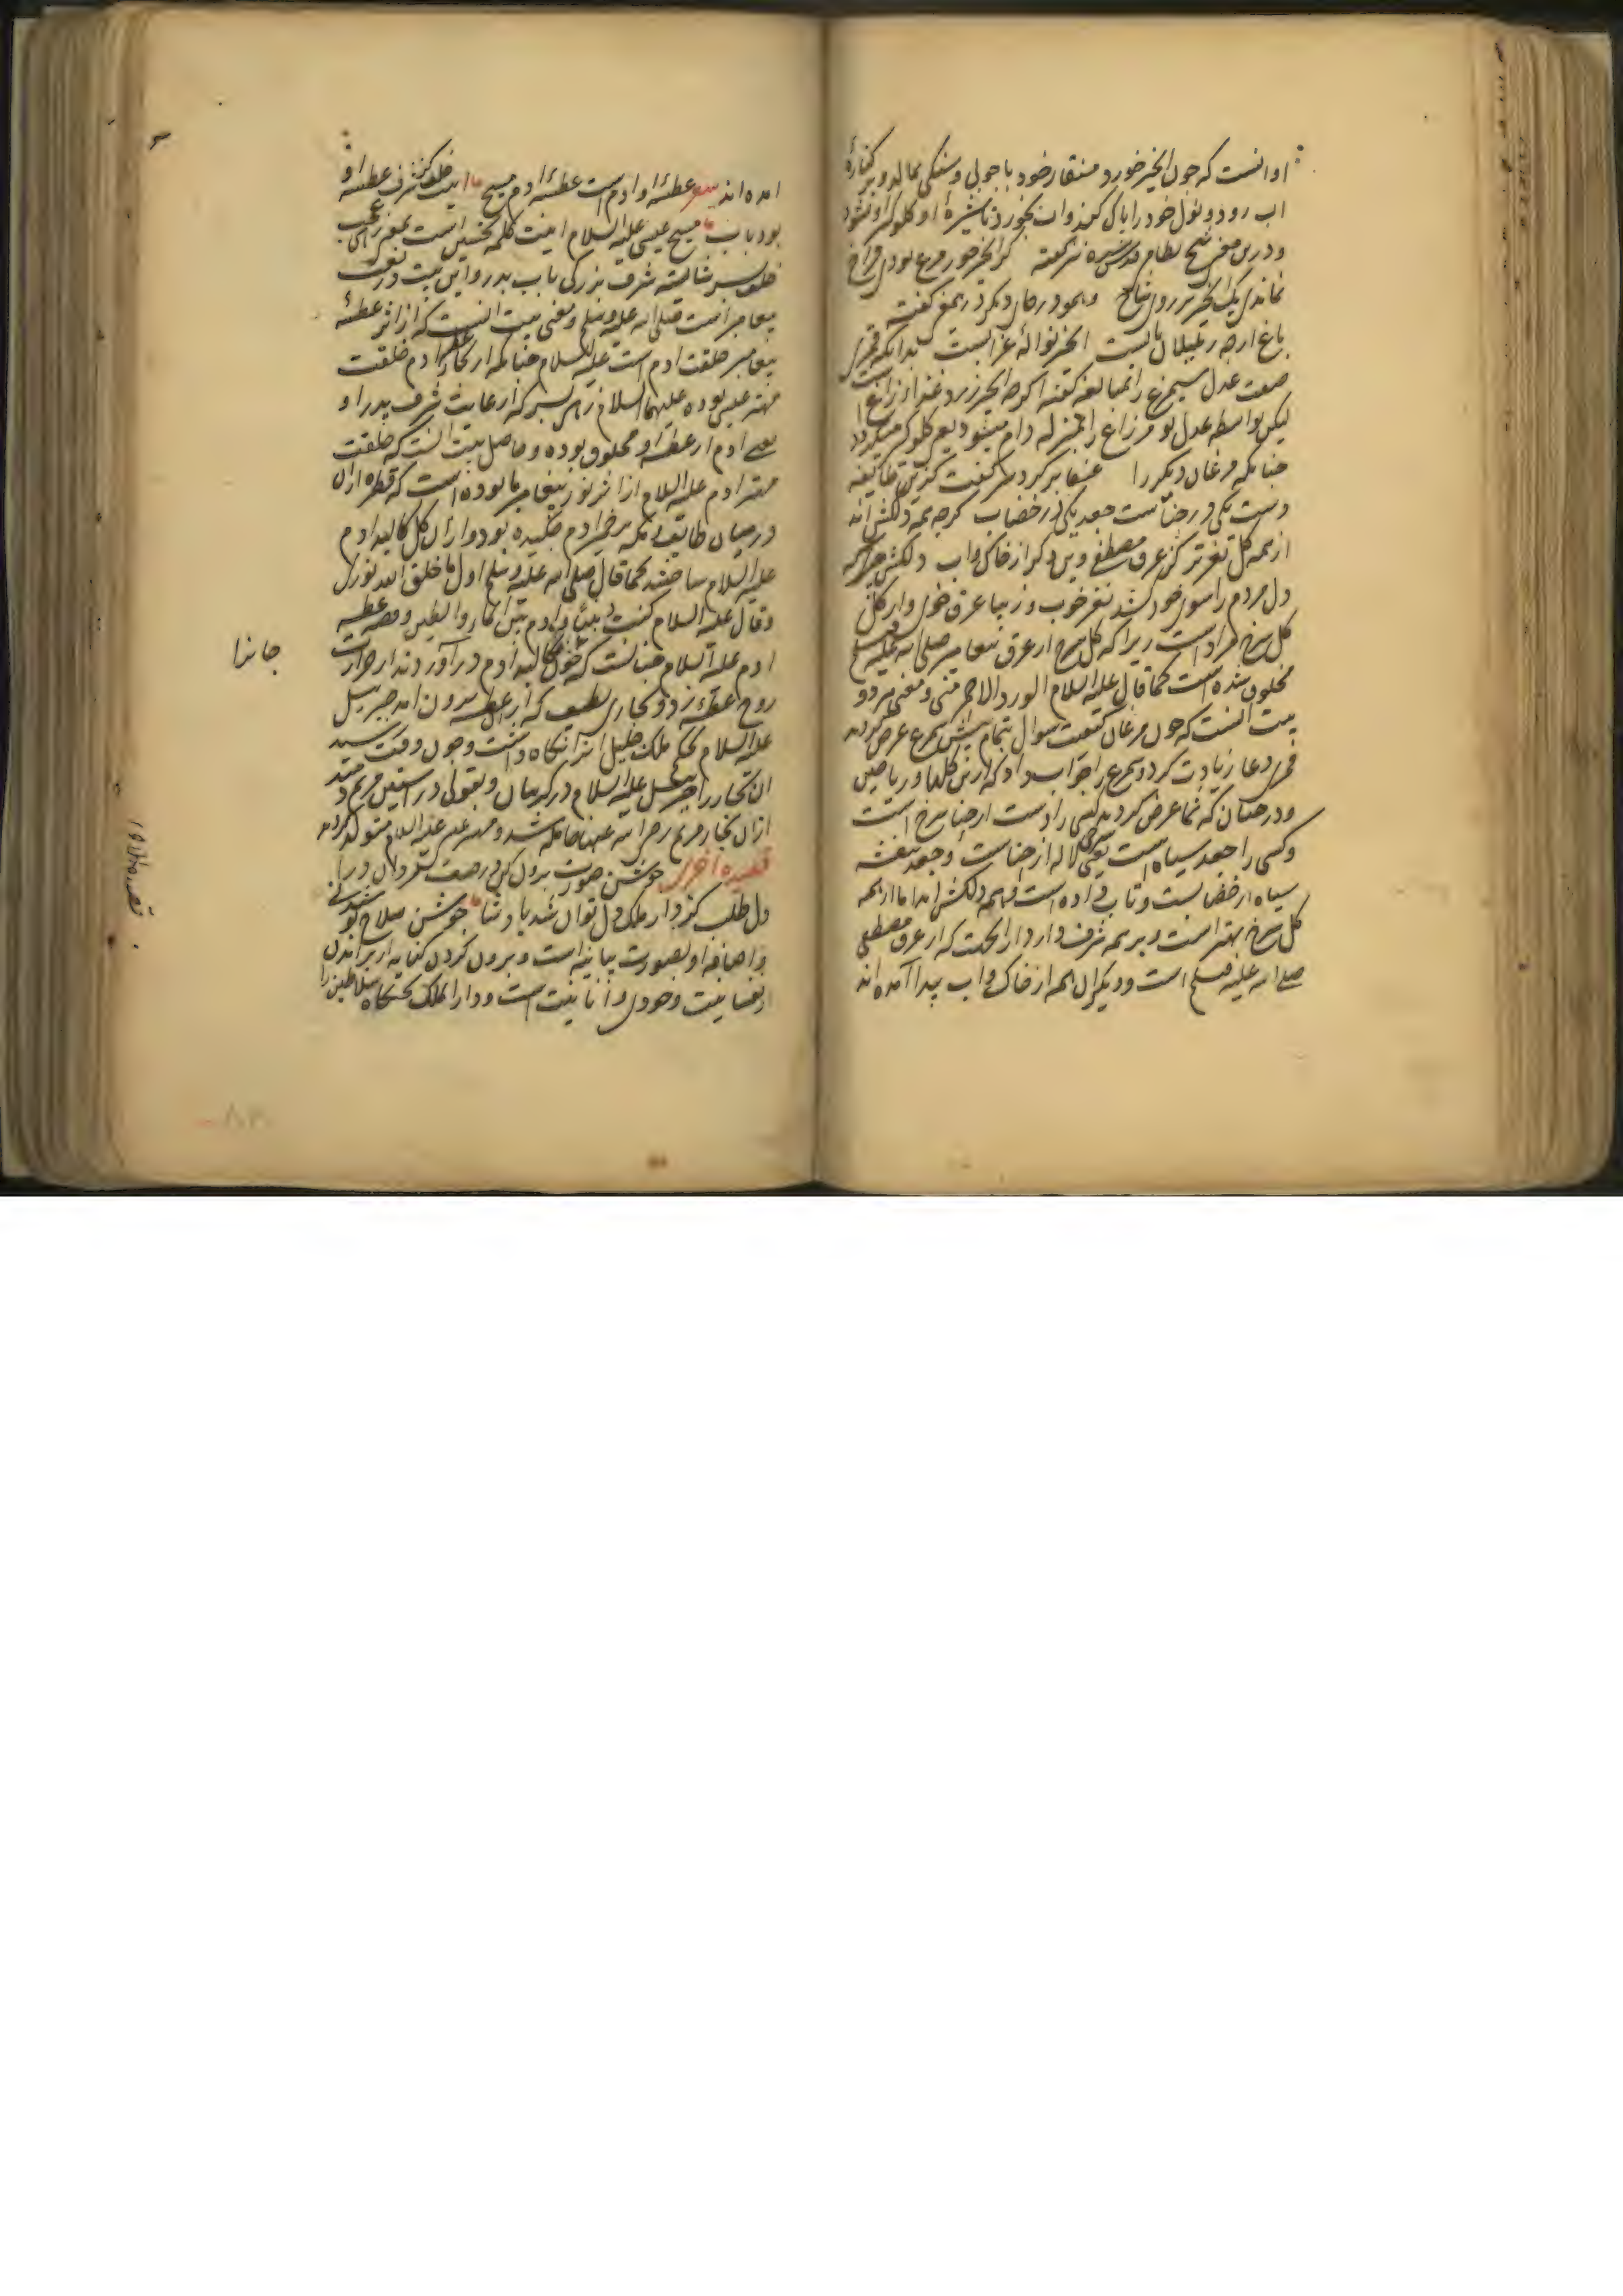 او انست که چون انجیر خورد منقار خود با چوبی و سنگی بمالد و بر کنارهٔ
اب رود و نول خود را پاک کند و آب بخورد تا شیرهٔ او کلوکیر او نشود
و درین معنی شیخ نظام قدس سره گفته کر انجیر خور مرغ بودی فراخ
نماندی یک انجیر بر روی شاخ و همو در جای دیکر در همین معنی گفت
باغ ارچه ز بلبلان پر آبست انجیر نوالهٔ غرابست بدانکه قمری
صفت عدل سیمرغ را بمبالغه کفته اکرچه انجیر زرد غذا زاغ است
لیکن بواسطه عدل تو مر زاغ را بمنزله دام میشود یعنی کلوکیر میکردد
چنانکه مرغان دیکر را عنقا بر کرد سر گفت کزین طایفه
دست یکی در حناست جعد یکی در خضاب کرچه همه دلکش اند
از همه کل نغزتر کز عرق مصطفی وین دکر از خاک و آب دلکش چیزی که
دل مردم را سوی خود کشد نغز خوب و زیبا عرق خوی و از کل
کل سرخ مراد است زیرا که کل سرخ از عرق پیغامبر صلی الله علیه وسلم
مخلوق شده است کما قال علیه السلام الورد الاحمر منی و معنی هر دو
بیت انست که چون مرغان کیفیت سوال بتمام پیش سیمرغ عرض کردند
قمری دعا زیادت کرد و سیمرغ جواب داد که ازین کلها و ریاحین
و درختان که شما عرض کردید کسی را دست از حنا سرخ است
و کسی را جعد سیاه است یعنی کل لاله از حناست و جعد بنفشه
سیاه از خضابست و تاب داده است و همه دلکش اند اما از همه
کل سرخ بهتر است و بر همه شرف دارد از انجهت که از عرق مصطفی
صلی الله علیه وسلم است و دیکران همه از خاک و آب پیدا آمده اند
امده اند عطسهٔ او ادم است عطسهٔ ادم مسیح اینت خلف کز شرف عطسه او
بود باب مسیح عیسی علیه السلام اینت کلمه تحسین است بمعنی عجب
خلف پسر شایسته شرف بزرکی باب پدر و این بیت در نعت
پیغامبر است صلی الله علیه وسلم و معنی بیت انست که از اثر عطسهٔ
پیغامبر خلقت ادم است علیه السلام چنانکه از عطسهٔ ادم خلقت
مهتر عیسی بوده علیهما السلام زهی پسر که از غایت شرف پدر او
یعنی ادم از عطسه او مخلوق بوده و حاصل بیت انست که خلقت
مهتر ادم علیه السلام از اثر نور پیغامبر ما بوده است که قطره ازان
در میان بر خمیر ادم چکیده بود و از ان کل کالبد ادم
علیه السلام ساختند کما قال صلی الله علیه وسلم اول ما خلق الله نوری
و قال علیه السلام کنت نبیا و ادم بین الماء و الطین و قصه عطسه
ادم علیه السلام چنانست که چون جانرا کالبد ادم در آوردند از حرارت
روح عطسه زد و بخاری لطیف که از عطسه بیرون امد جبرییل
علیه السلام بحکم ملک جلیل انرا نکاه داشت و چون وقت رسید
ان بخار را جبرییل علیه السلام در کریبان و بقولی در استین مریم دمید
ازان بخار مریم رضی الله عنها حامله شد و مهتر عیسی علیه السلام متولد کردید
قصیده اخری جوشن صورت برون کن در صف مردان درا
دل طلب کز دار ملک دل توان شد پادشا جوشن سلاح
و اضافه او بصورت بیانیه است و برون کردن کنایه از برآمدن
از نفسانیت و خودی و انانیت است و دار الملک تختکاه سلاطین را
جانرا